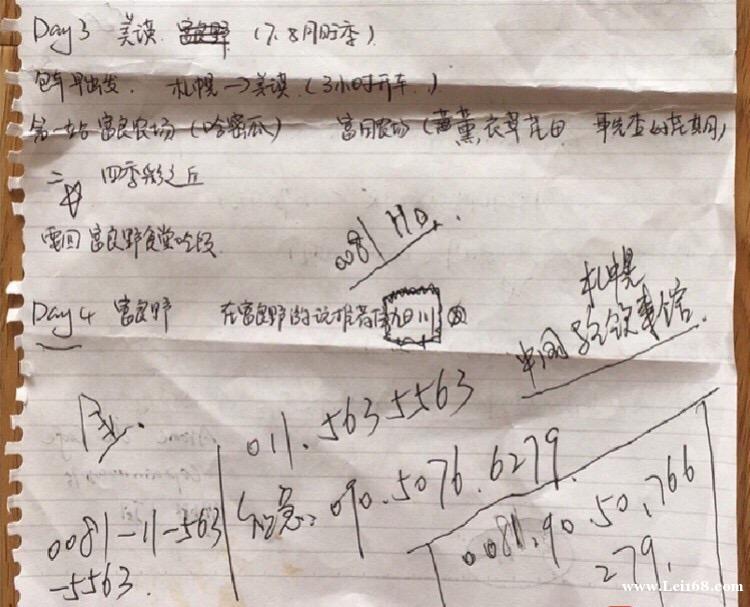 Day 3 美瑛 富良野 (7.8月旺季)
包车早出发. 札幌→美瑛 (3小时开车.)
第一站 富良农场 (哈密瓜) 富田农场 (薰衣草花田 事先查好花期)
二 四季彩之丘
要回富良野食堂吃饭
0081 HO.
Day 4 富良野 在富良野的话推荐住旭川
札幌
中国 领事馆.
011.563 5563
急: 090.5076.6279.
0081-11-563
-5563.
0081.90.50,766
279.
www.Lei168.com